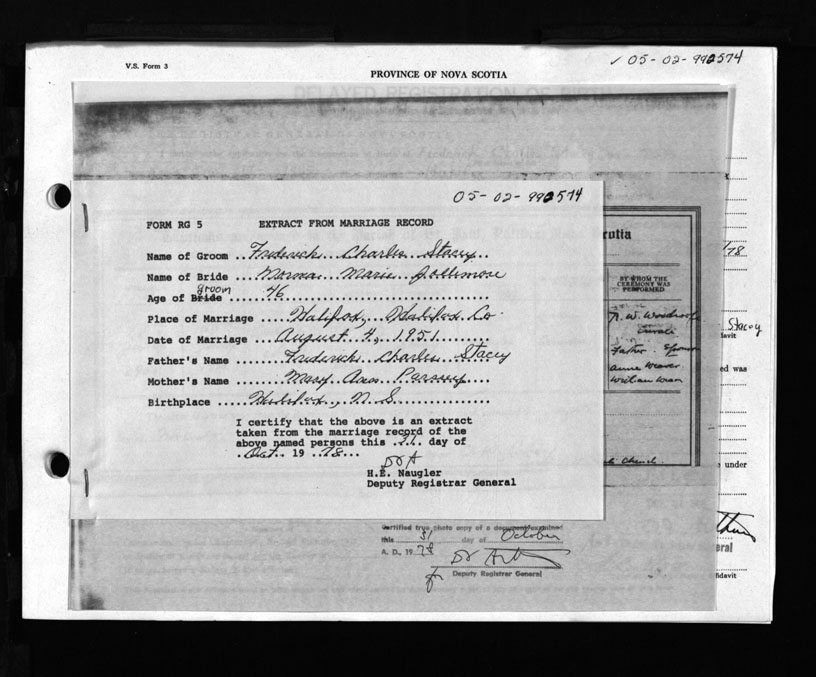 V.S. Form 3
05-02-992574
PROVINCE OF NOVA SCOTIA
DELAYED REGISTRATION OF BIRTH
05-02-992574
FORM RG 5 EXTRACT FROM MARRIAGE RECORD
Name of Groom ..Frederick Charles Stacey..
Name of Bride ..Norma Marie Jollimore
groom
Age of Bride .....46...............................
Place of Marriage ..Halifax, Halifax Co.
Date of Marriage ...August 4, 1951........
Father's Name .......Frederick Charles Stacey
Mother's Name .....Mary Ann
Birthplace .....Halifax, N.S................
I certify that the above is an extract
taken from the marriage record of the
above named persons this .31. day of
.Oct. 19 .78...
H.E. Naugler
Deputy Registrar General
cotia
BY WHOM THE
CEREMONY WAS
PERFORMED
Father
Annie Weaver
William
Church
/78
Stacey
davit
ed was
under
eral
fidavit
Certified true photo copy of a document examined
this 31 day of October
A. D., 19 78
for Deputy Registrar General